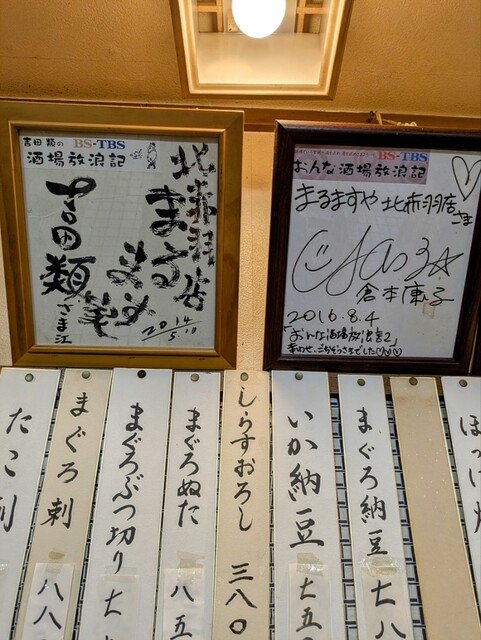 吉田類の BS-TBS
酒場放浪記
北赤羽店
まるます家
吉田類
さま江
2014
5.10
BS-TBS
おんな酒場放浪記
まるますや 北赤羽店さま
倉本康子
2016.8.4
「おんな酒場放浪記2」
たこ刺
まぐろ刺
八八
まぐろぶつ切り
七
まぐろぬた
八五
しらすおろし
三八〇
いか納豆
七五
まぐろ納豆
七八
ほっけ